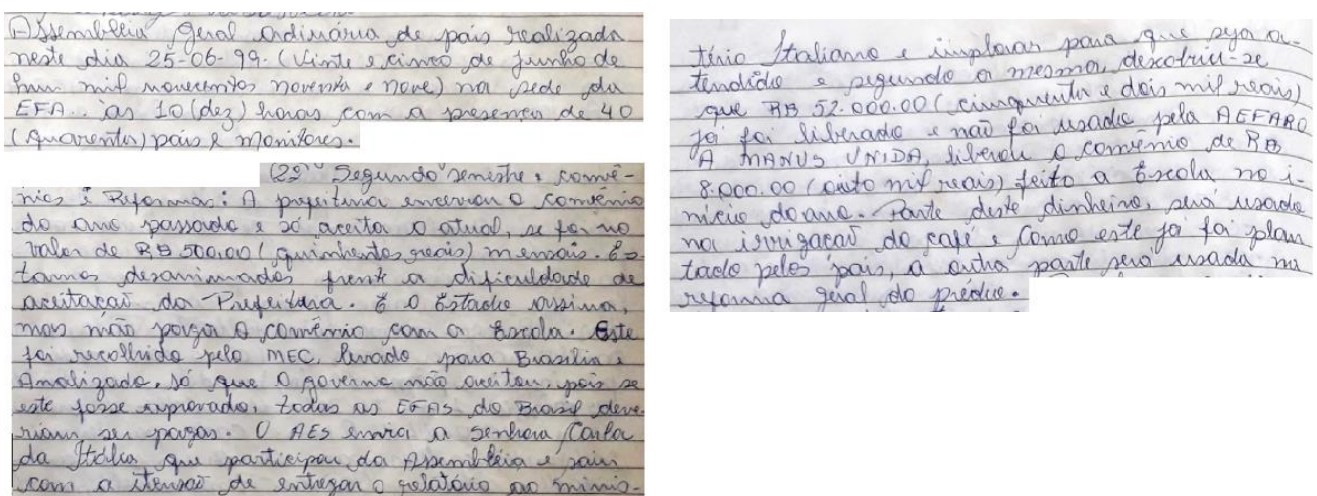 Assembleia Geral ordinária de pais realizada
neste dia 25-06-99. (Vinte e cinco de Junho de
hum mil novecentos noventa e nove) na sede da
EFA.. às 10 (dez) horas com a presença de 40
(quarenta) pais e monitores.
(2º) Segundo semestre e convê-
nios e Reformas: A prefeitura encerrou o convênio
do ano passado e só aceita o atual, se for no
valor de R$ 500,00 (quinhentos reais) mensais. Es-
tamos desanimados frente a dificuldade de
aceitação da Prefeitura. E o Estado assina,
mas não paga o convênio com a Escola. Este
foi recolhido pelo MEC, levado para Brasília e
Analizado, só que o governo não aceitou, pois se
este fosse aprovado, todas as EFAS do Brasil deve-
riam ser pagas. O AES envia a senhora Carla
da Itália que participou da Assembleia e saiu
com a itensão de entregar o relatório ao minis-
tério Italiano e implorar para que seja a-
tendido e segundo a mesma, descobriu-se
que R$ 52.000.00 (cinquenta e dois mil reais)
já foi liberado e não foi usado pela AEFARO
A MANUS UNIDA, liberou o convênio de R$
8.000.00 (oito mil reais) feito a Escola no i-
nício do ano. Parte deste dinheiro, será usado
na irrigação do café e como este já foi plan
tado pelos pais, a outra parte será usada na
reforma geral do prédio.